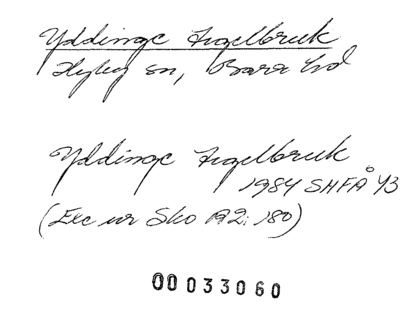 Yddinge Tegelbruk
Hyby sn, Bara hd
Yddinge Tegelbruk
1984 SHFÅ 43
(Exc ur Sko A2:180)
00033060